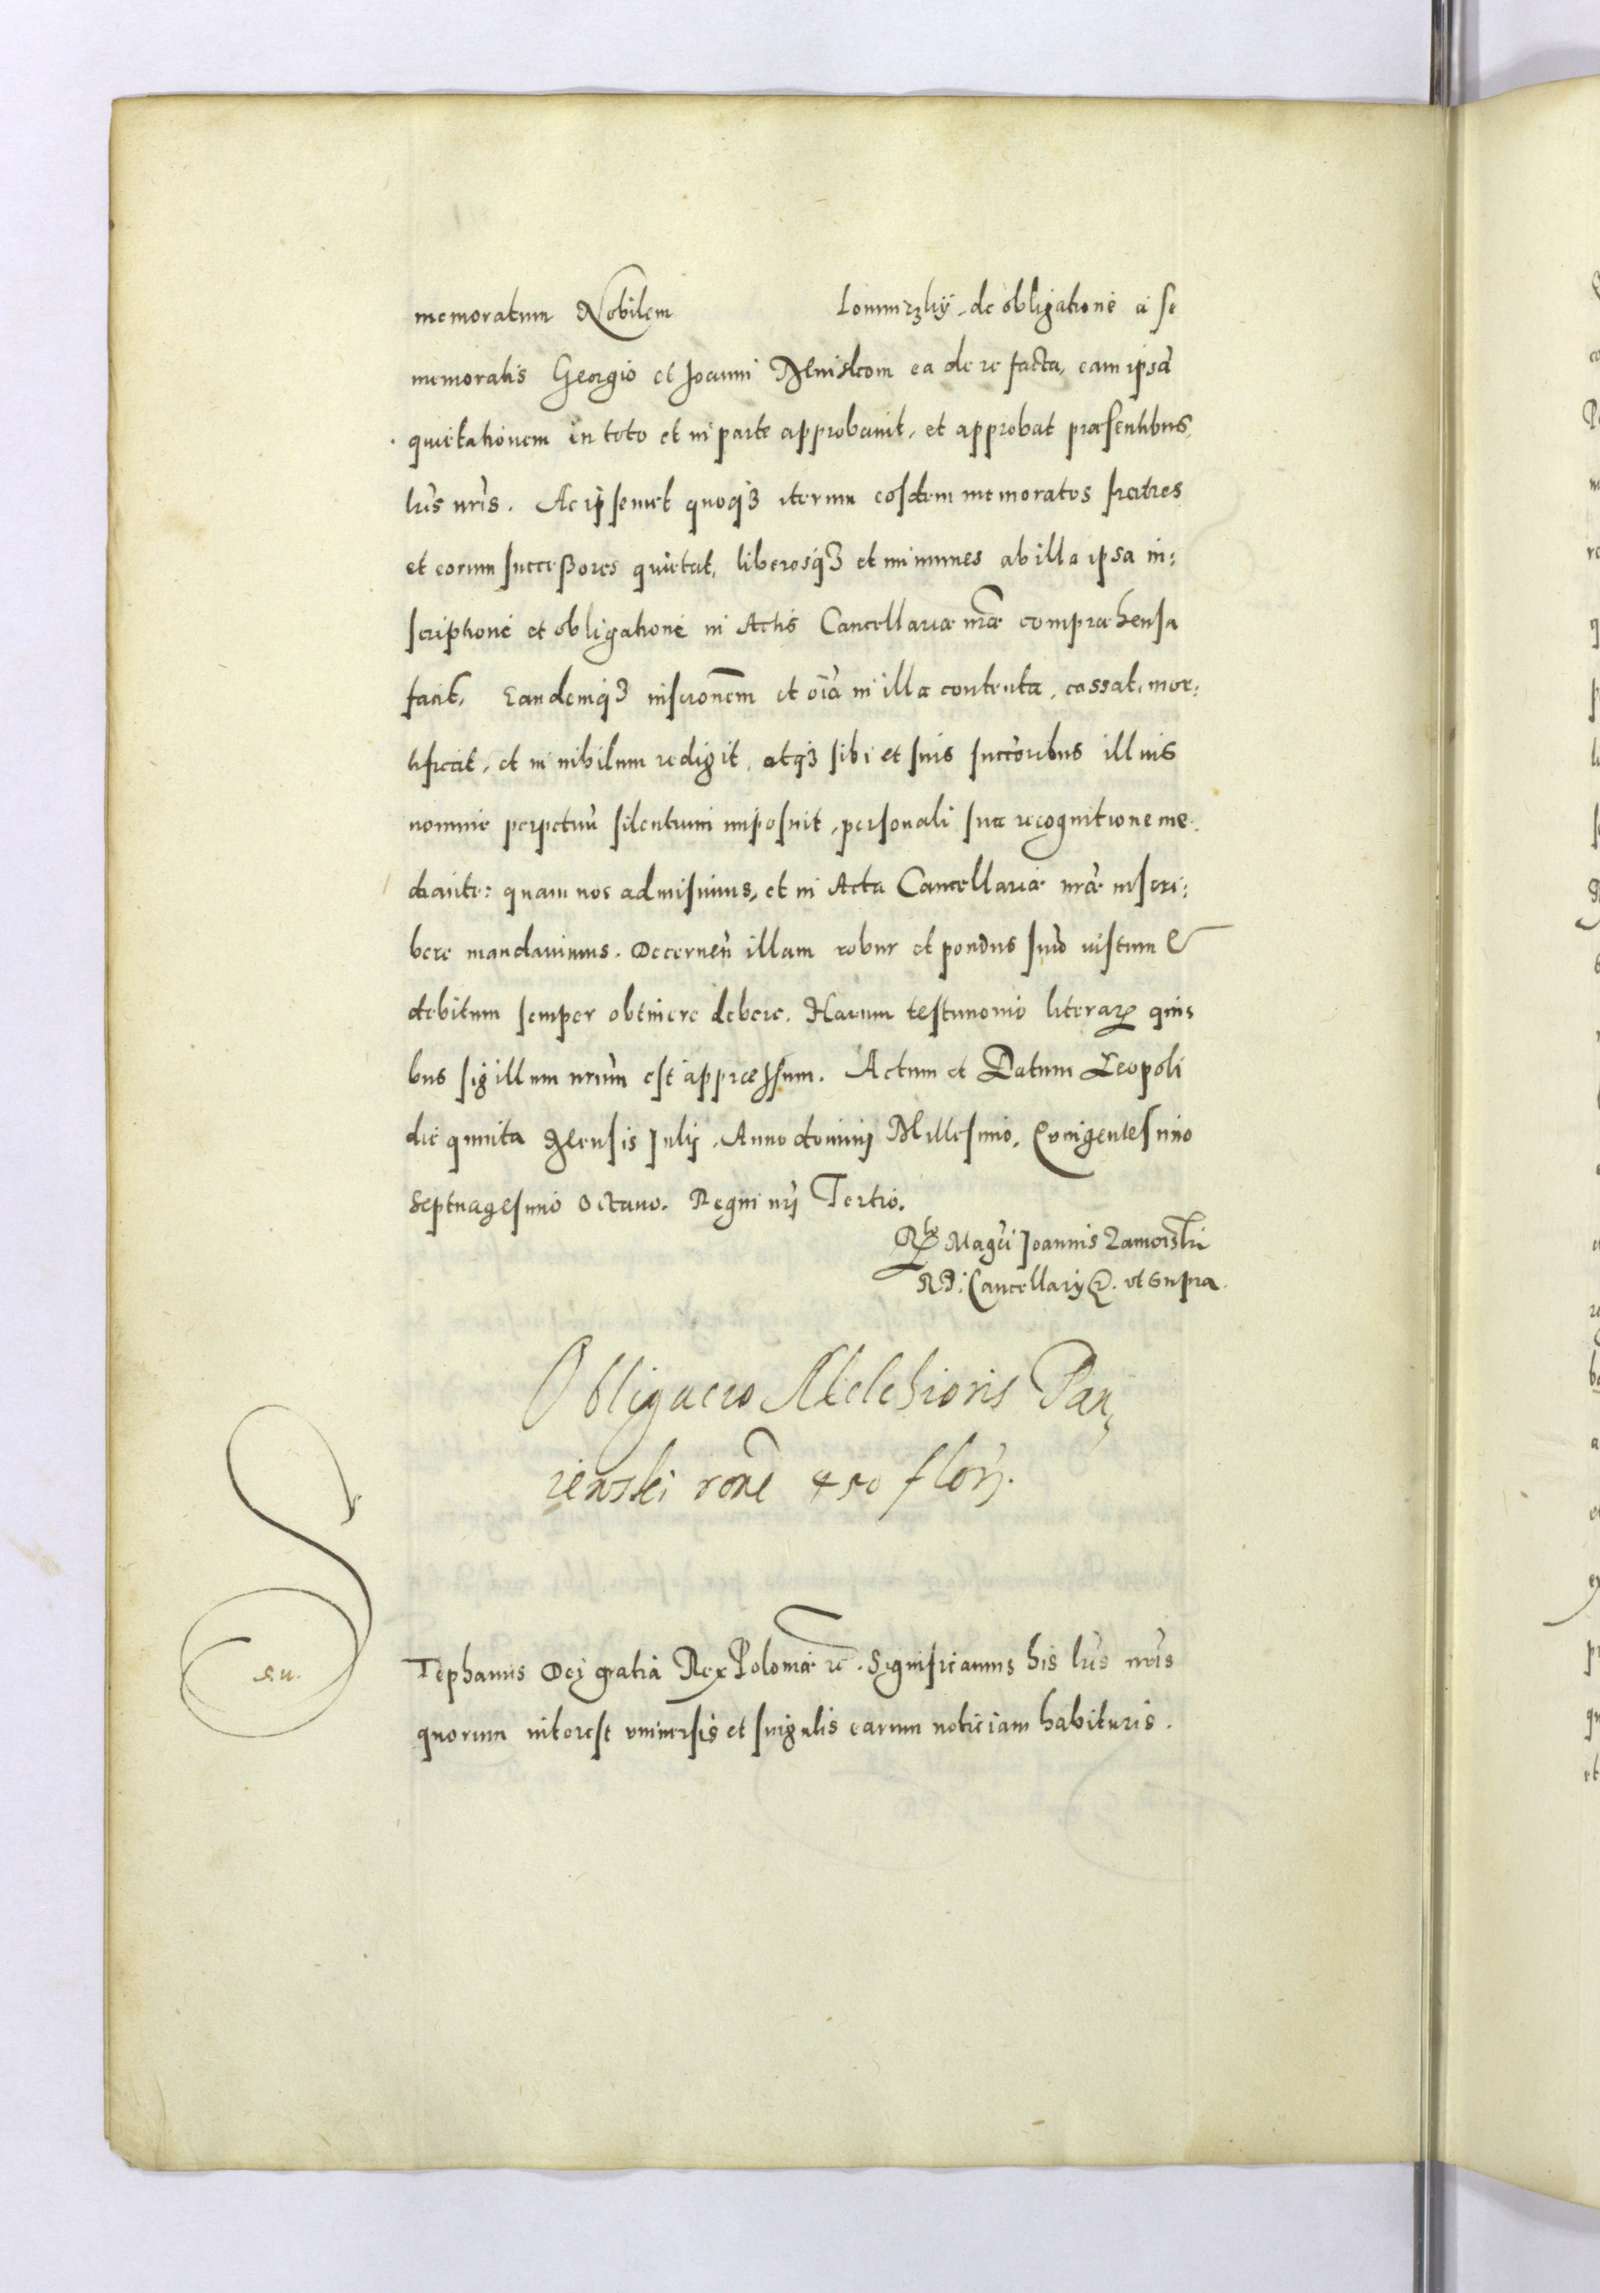 memoratum Nobilem Lomnizkij, de obligatione a se
memoratis Georgio et Joanni Mniskom ea de re facta, eam ipsā
quietationem in toto et in parte approbavit, et approbat præsentibus
lr̄is nr̄is. Ac ipsemet quoq3 iterum eosdem memoratos fratres
et eorum successores quietat, liberosq3 et immunes ab illa ipsa in:
scriptione et obligatione in Actis Cancellariæ nr̄æ compræhensa
facit, Eandemq3 inscr̄onem et oīa in illa contenta, cassat, mor:
tificat, et in nihilum redigit, atq3 sibi et suis succ̄oribus illius
nomine perpetuū silentium imposuit, personali sua recognitione me
diante: quam nos admisimus, et in Acta Cancellariæ nr̄æ inscri:
bere mandavimus. Decernen̄ illam robur et pondus suūm iustum &
debitum semper obtinere debere. Harum testimonio literarꝝ qui:
bus sigillum nr̄um est appræssum. Actum et Datum Leopoli
die quinta Mensis Julij. Anno dominj Millesimo, Quingentesimo
Septuagesimo Octavo. Regni nr̄i Tertio.
R̄lo Mag̃ci Joannis Zamoiski
RP: Cancellarij &. ut supra.
Obligacio Melchioris Pan,
ienski rone 450 flor.
S
Tephanus Dej gratia Rex Poloniæ &c. Significamus his lr̄is nr̄is
quorum interest universis et singulis earum noticiam habituris.